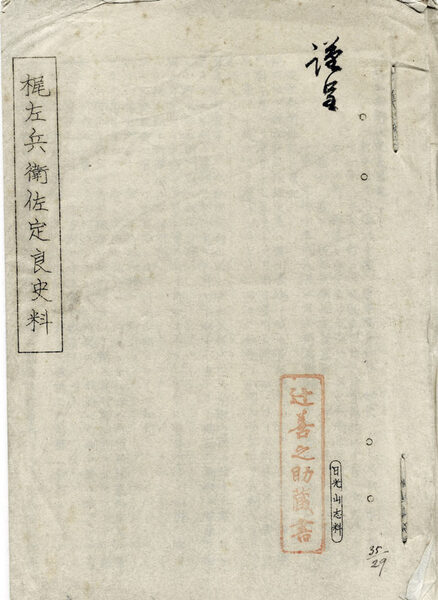 謹呈
梶左兵衛佐定良史料
辻善之助蔵書
日光山志料
35-
29